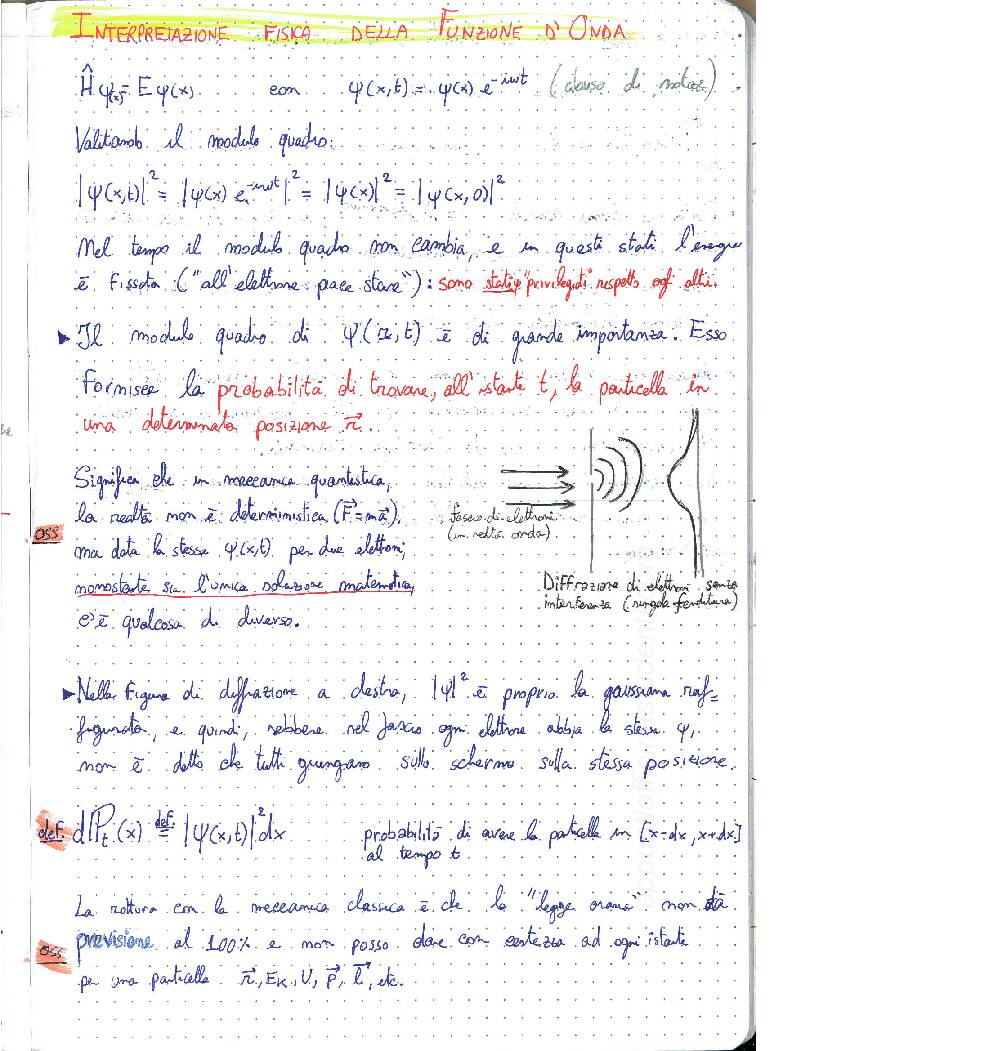 INTERPRETAZIONE FISICA DELLA FUNZIONE D'ONDA
Ĥψ(x) = Eψ(x) con ψ(x,t) = ψ(x) e^-iωt (abuso di notaz.)
Valutando il modulo quadro:
|ψ(x,t)|² = |ψ(x) e^-iωt|² = |ψ(x)|² = |ψ(x,0)|²
Nel tempo il modulo quadro non cambia, e in questi stati l'energia
è fissata ("all'elettrone piace stare"): sono stati "privilegiati" rispetto agli altri.
▸ Il modulo quadro di ψ(r,t) è di grande importanza. Esso
fornisce la probabilità di trovare, all'istante t, la particella in
una determinata posizione r⃗.
Significa che in meccanica quantistica,
la realtà non è deterministica (F⃗=ma⃗),
oss
ma data la stessa ψ(x,t) per due elettroni,
nonostante sia l'unica soluzione matematica,
c'è qualcosa di diverso.
fascio di elettroni
(in realtà onda)
Diffrazione di elettroni senza
interferenza (singola fenditura)
▸ Nella figura di diffrazione a destra, |ψ|² è proprio la gaussiana raf-
figurata, e quindi, sebbene nel fascio ogni elettrone abbia la stessa ψ,
non è detto che tutti giungano sullo schermo sulla stessa posizione.
def. dℙt(x) def.= |ψ(x,t)|²dx probabilità di avere la particella in [x-dx, x+dx]
al tempo t
La rottura con la meccanica classica è che la "legge oraria" non dà
oss previsione al 100% e non posso dare con certezza ad ogni istante
per una particella r⃗, EK, U, p⃗, l⃗, etc.